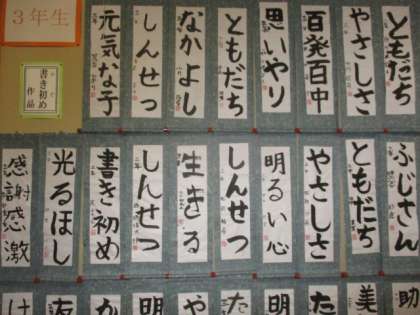 3年生
書き初め
作品
ともだち
やさしさ
百発百中
思いやり
ともだち
なかよし
しんせつ
元気な子
ふじさん
ともだち
やさしさ
明るい心
しんせつ
生きる
しんせつ
書き初め
光るほし
感謝感激
助
美
た
明
た
や
明
か
友
け